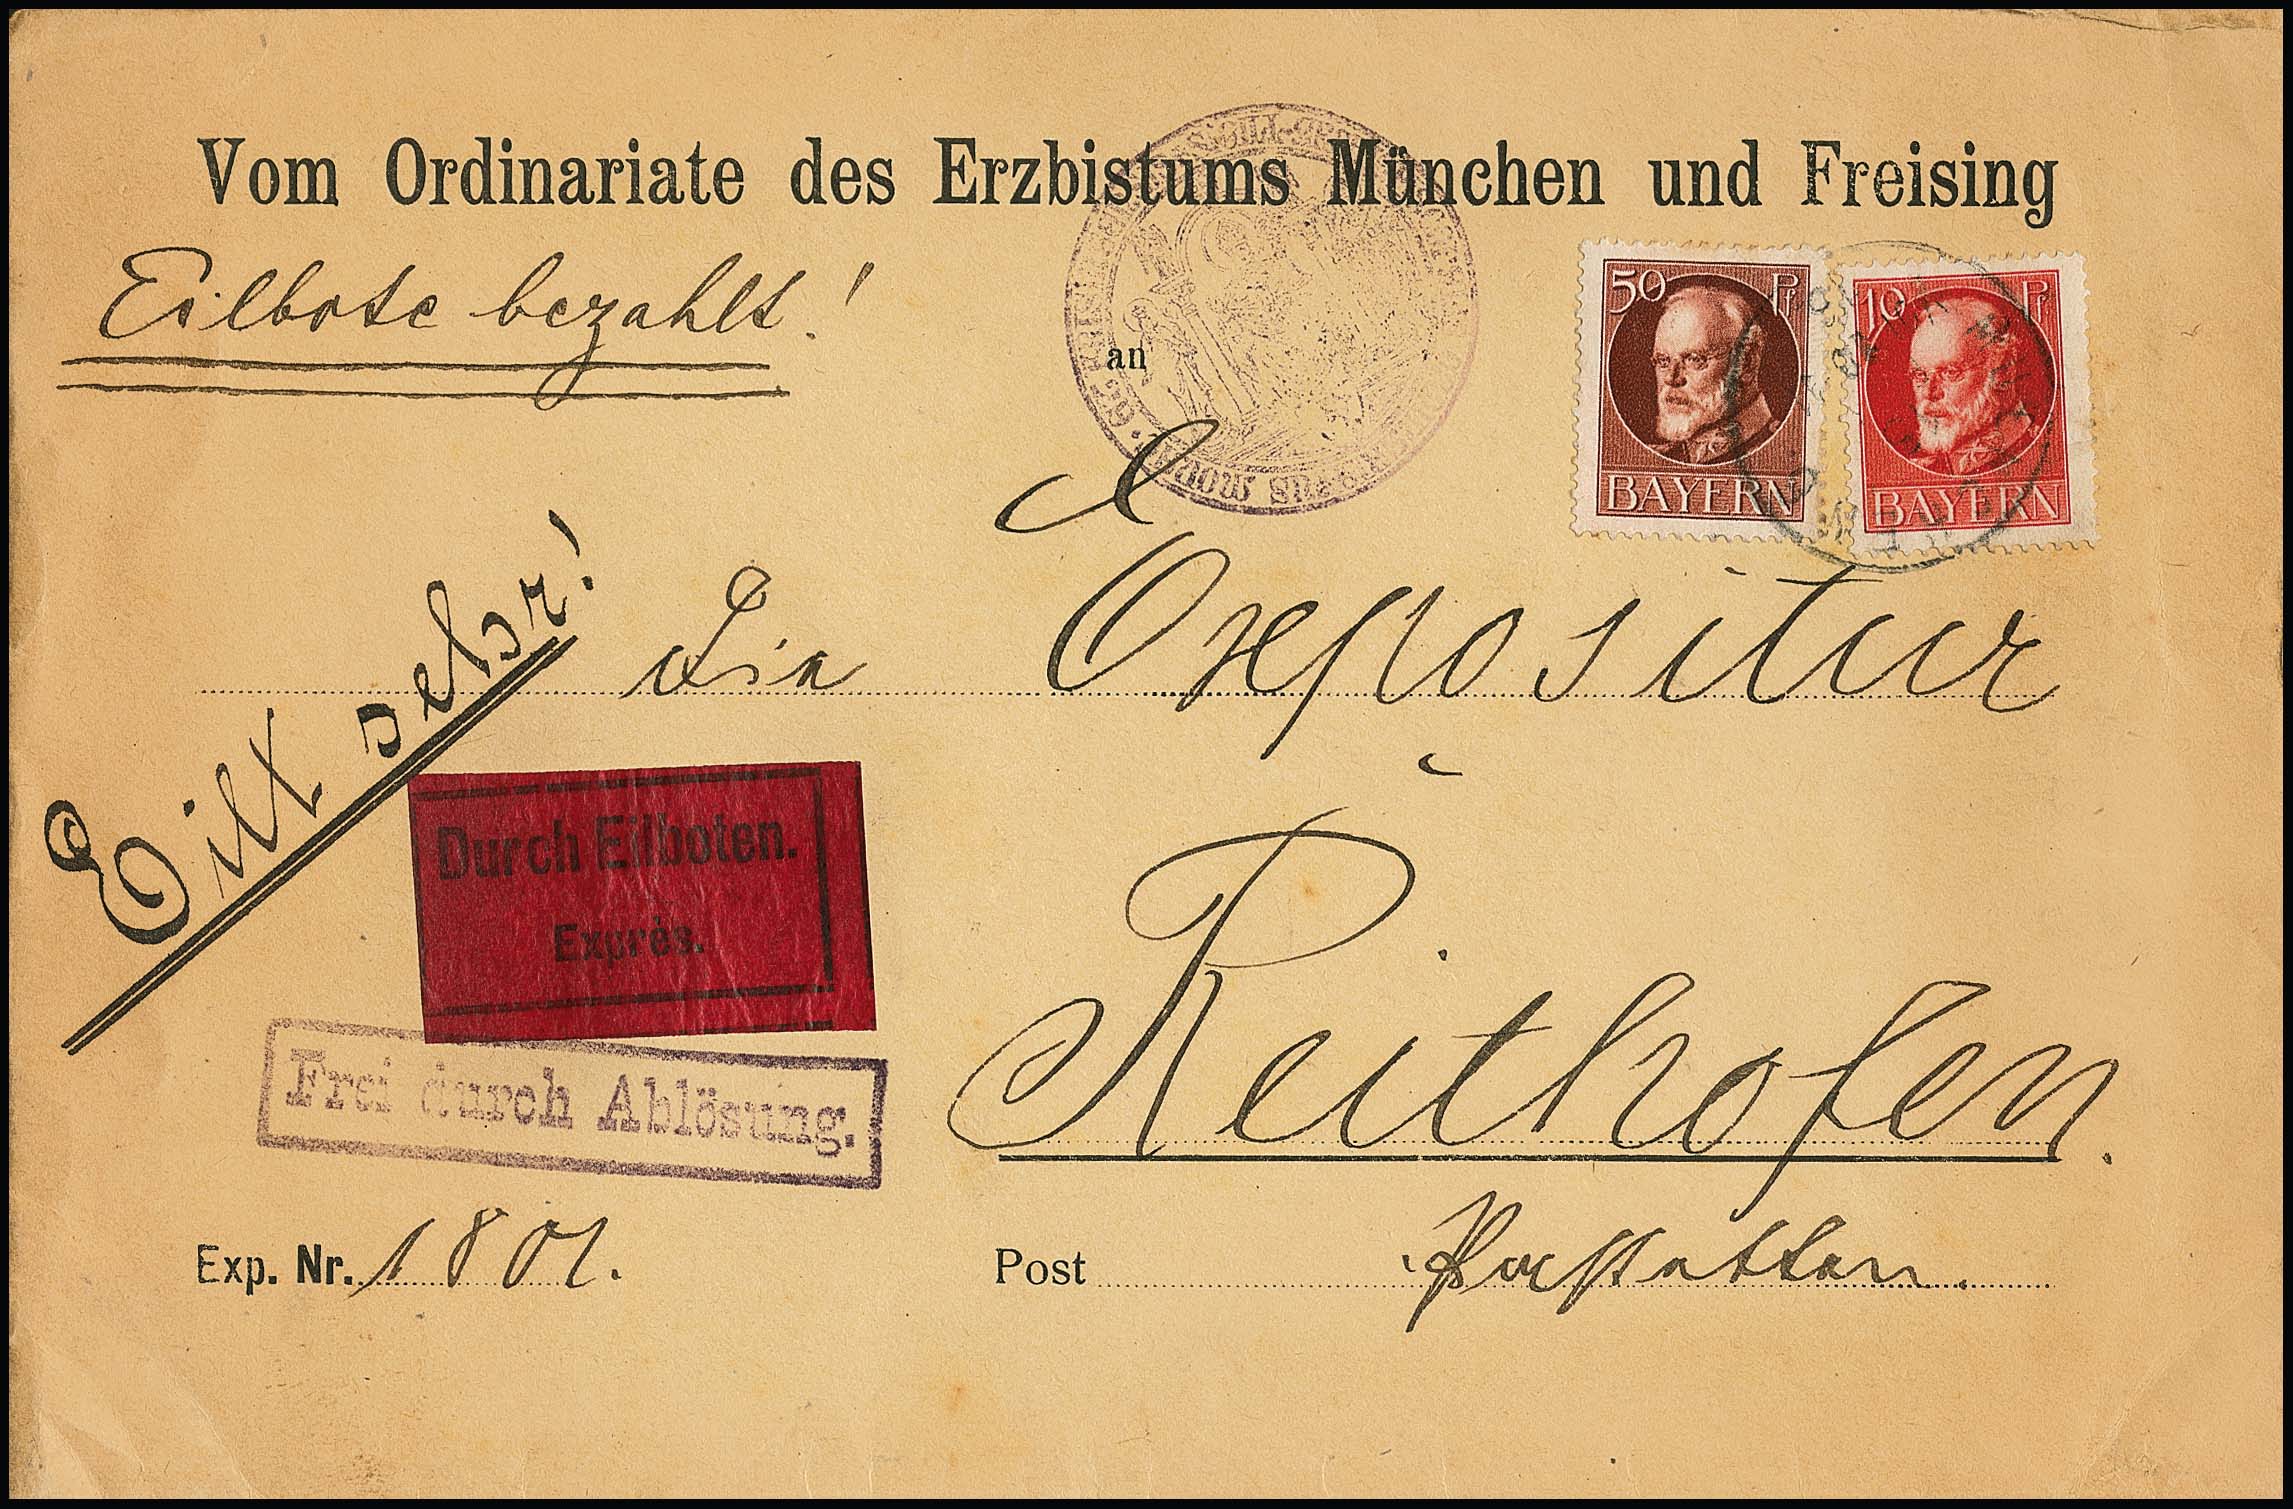 Vom Ordinariate des Erzbistums München und Freising
Eilbote bezahlt!
an
50 Pf
BAYERN
10 Pf
BAYERN
Eilt sehr!
Die Expositur
Reithofen.
Durch Eilboten.
Exprès.
Frei durch Ablösung.
Exp. Nr. 1801.
Post Hörpolding